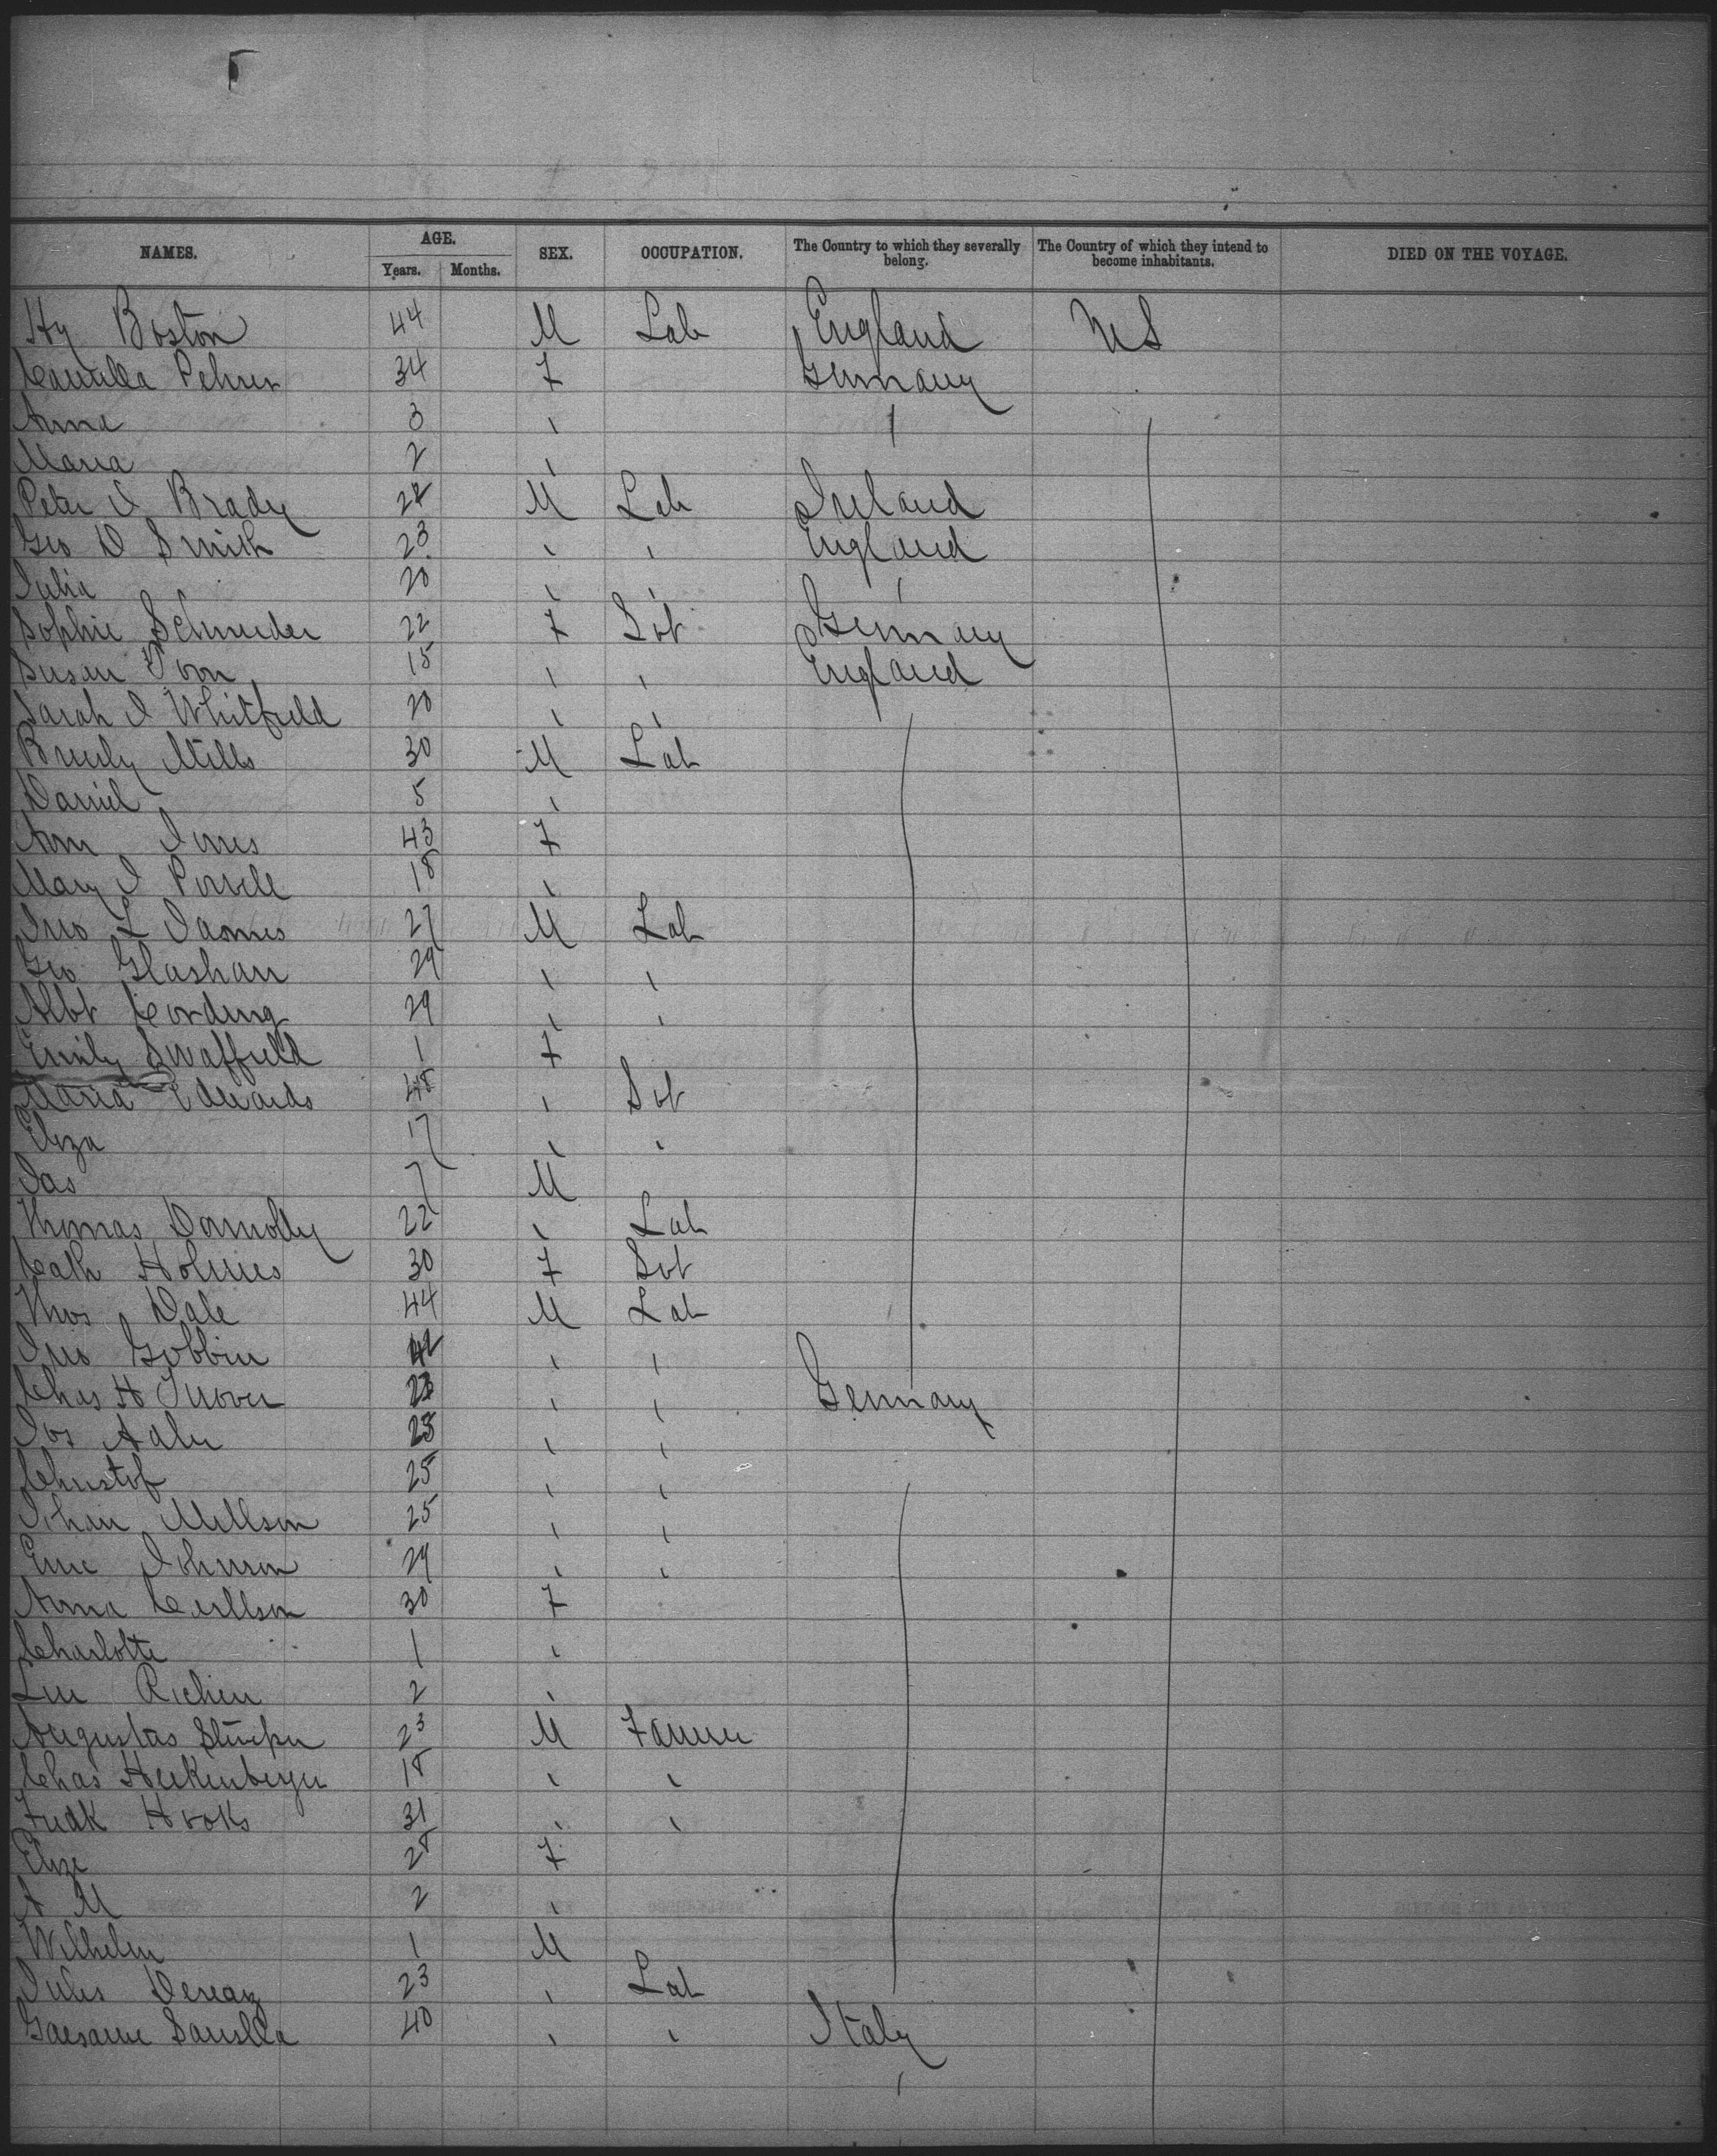 NAMES. AGE. SEX. OCCUPATION. The Country to which they severally belong. The Country of which they intend to become inhabitants. DIED ON THE VOYAGE.
Years. Months.
Hy Boston 44 M Lab England US
Camilla 34 F Germany
Anna 3 "
Maria 2 "
Peter J Brady 28 M Lab Ireland
Geo D Smith 23 " " England
Julia 20 " " "
Sophie Schneider 22 F Svt Germany
Susan 15 " " England
Sarah J Whitfield 20 " "
Mills 30 M Lab
Daniel 5 "
Ann Jones 43 F
Mary J Powell 18 "
Jno L James 27 M Lab
Geo Glashan 29 " "
Albt Cording 29 " "
Emily Swaffield 1 F
Maria Edwards 48 " Svt
Eliza 17 " "
Jas 7 M
Thomas Donnolly 22 " Lab
Cath Holmes 30 F Svt
Thos Dale 44 M Lab
Jno Gobbin 42 " "
Chas H " " Germany
Jos Adler " "
Christof 25 " "
Johan Millson 25 " "
Johnson 29 " "
Anna 30 F
Charlotte 1 "
2 "
Augustas 23 M Farmer
Chas Heckenberger 18 " "
Fredk Hooks 31 " "
Elize 28 F
A M 2 "
Wilhelm 1 M
Jules 23 " Lab
40 " " Italy
"